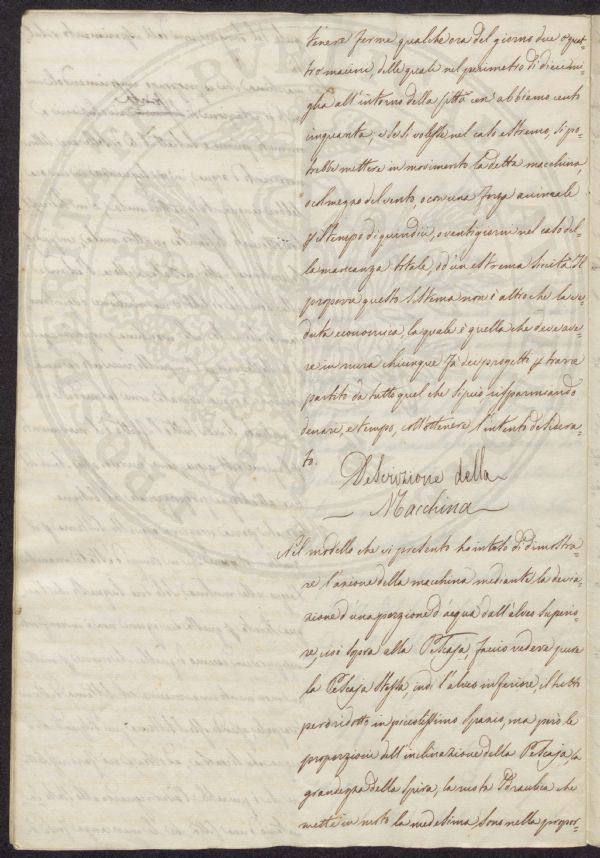 tenere ferme qualche ora del giorno due o quat=
tro macine, delle quali nel perimetro di dieci mi=
glia all'intorno della Città cen' abbiamo cento
cinquanta; e se si volesse nel caso estremo si po=
trebbe mettere in movimento la detta macchina,
o col mezzo del vento, o con una forza animale
p il tempo di quindici, o venti giorni nel caso del=
la mancanza totale, od'un estrema siccità. Il
proporre questo sistema non è altro che la ve=
duta economica, la quale è quella che deve ave=
re in mira chiunque fà dei progetti p trarre
partito da tutto quel che si può risparmiando
denaro, e tempo, coll'ottenere l'intento desidera=
to.
Descrizione della
Macchina
Nel modello che si presenta ho inteso di dimostra=
re l'azione della macchina mediante la devia=
zione d'una porzione d'acqua dall'alveo superio=
re, cioè sopra alla Pescaja, faccio vedere pure
la Pescaja stessa indi l'alveo inferiore, il tutto
però ridotto in piccolissimo spazio, ma però le
proporzioni dell'inclinazione della Pescaja, la
grandezza della spira, la ruota Idraulica che
mette in moto la medesima, sono nella propor=